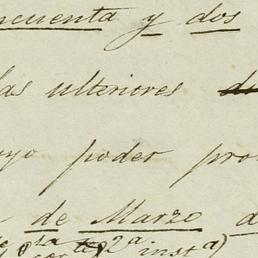 ncuenta y dos
las ulteriores
yo poder pro
de Marzo d
2ª instª)